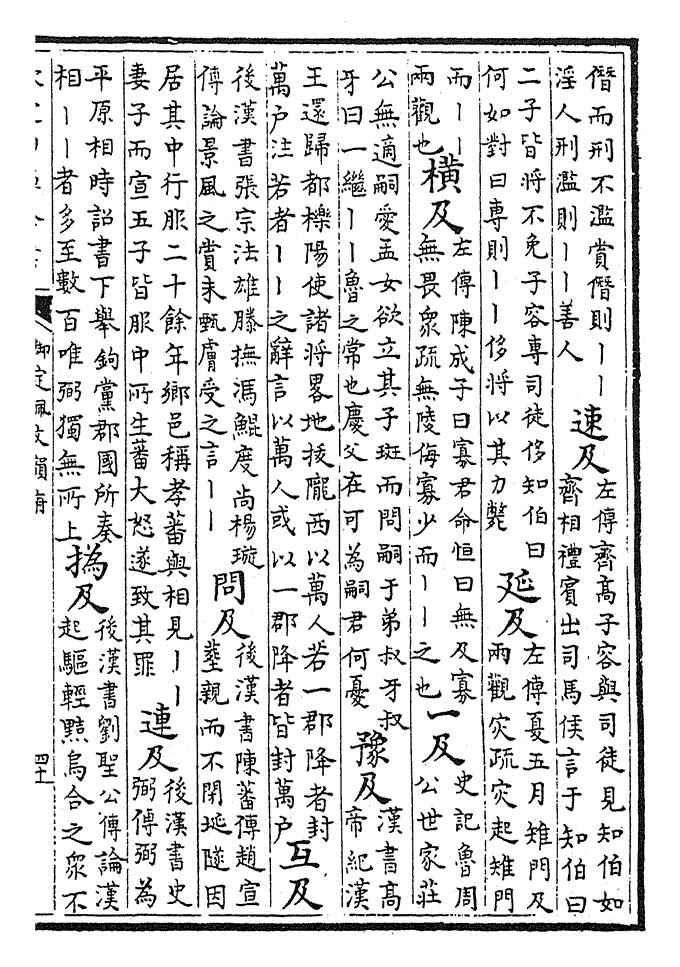 僭而刑不濫賞僭則丨丨
淫人刑濫則丨丨善人
速及
左傳齊髙子容與司徒見知伯如
齊相禮賓出司馬侯言于知伯曰
二子皆將不免子容專司徒侈知伯曰
何如對曰專則丨丨侈將以其力斃
延及
左傳夏五月雉門及
兩觀灾疏灾起雉門
而丨丨
兩觀也
橫及
左傳陳成子曰寡君命恒曰無及寡
無畏衆疏無陵侮寡少而丨丨之也
一及
史記魯周
公世家莊
公無適嗣愛孟女欲立其子斑而問嗣于弟叔牙叔
牙曰一繼丨丨魯之常也慶父在可為嗣君何憂
豫及
漢書髙
帝紀漢
王還歸都櫟陽使諸將畧地拔隴西以萬人若一郡降者封
萬户注若者丨丨之辭言以萬人或以一郡降者皆封萬户
互及
後漢書張宗法雄滕撫馮鯤度尚楊璇
傳論景風之賞未甄膚受之言丨丨
問及
後漢書陳蕃傳趙宣
塟親而不閉埏隧因
居其中行服二十餘年鄉邑稱孝蕃與相見丨丨
妻子而宣五子皆服中所生蕃大怒遂致其罪
連及
後漢書史
弼傳弼為
平原相時詔書下舉鉤黨郡國所奏
相丨丨者多至數百唯弼獨無所上
撝及
後漢書劉聖公傳論漢
起驅輕黠烏合之衆不
御定佩文韻府